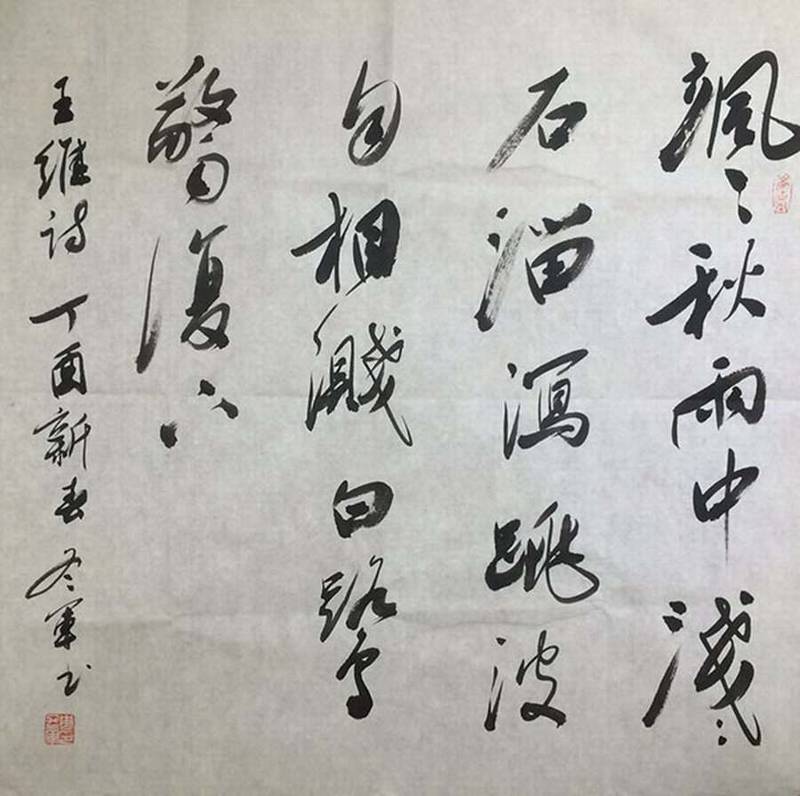 颯〻秋雨中淺〻
石溜瀉跳波
自相濺白鷺
驚復下
王維詩丁酉新春冬軍书